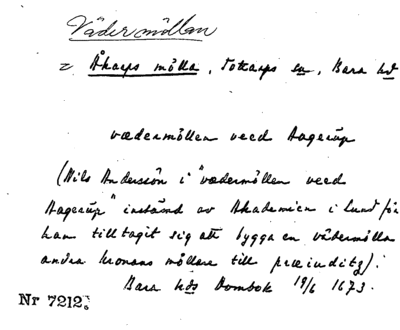 Vädermöllan
= Åkarps mölla, Totarps sn, Bara hd
vædermöllen veed Aagerup
(Nils Andersson i "vædermöllen veed
Aagerup" instämd av Akademien i Lund för
han tilltagit sig att bygga en vädermölla
andra kronans möllare till præiuditz).
Bara hds Dombok 19/6 1673.
Nr 7212.